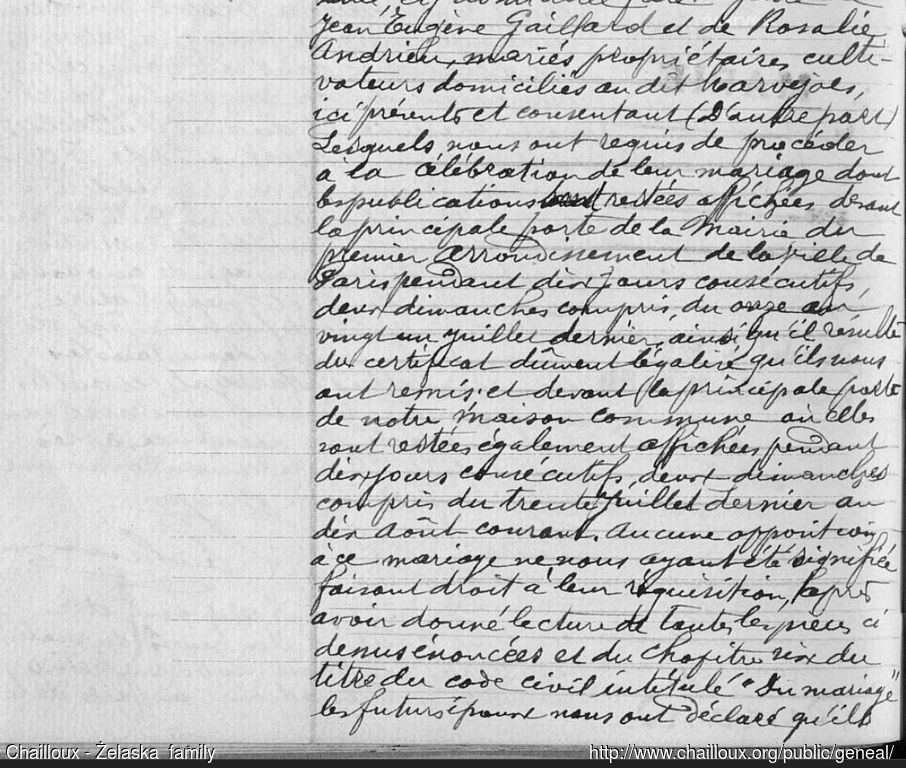 Jean Eugène Gaillard et de Rosalie
Andrieu, mariés propriétaires culti-
vateurs domiciliés au dit Marvejols,
ici présents et consentant (D'autre part)
Lesquels nous ont requis de procéder
à la célébration de leur mariage dont
les publications restées affichées devant
la principale porte de la Mairie du
premier Arrondissement de la ville de
Paris pendant dix jours consécutifs,
deux dimanches compris, du onze au
vingt un Juillet dernier, ainsi qu'il résulte
du certificat dûment légalisé qu'ils nous
ont remis; et devant la principale porte
de notre Maison commune où elles
sont restées également affichées pendant
dix jours consécutifs, deux dimanches
compris du trente Juillet dernier au
dix Août courant. Aucune opposition
à ce mariage ne nous ayant été signifiée
faisant droit à leur réquisition, après
avoir donné lecture de toutes les pièces ci
dessus énoncées et du chapitre six du
titre du code civil intitulé "Du mariage"
les futurs époux nous ont déclaré qu'ils
Chailloux - Żelaska family
http://www.chailloux.org/public/geneal/